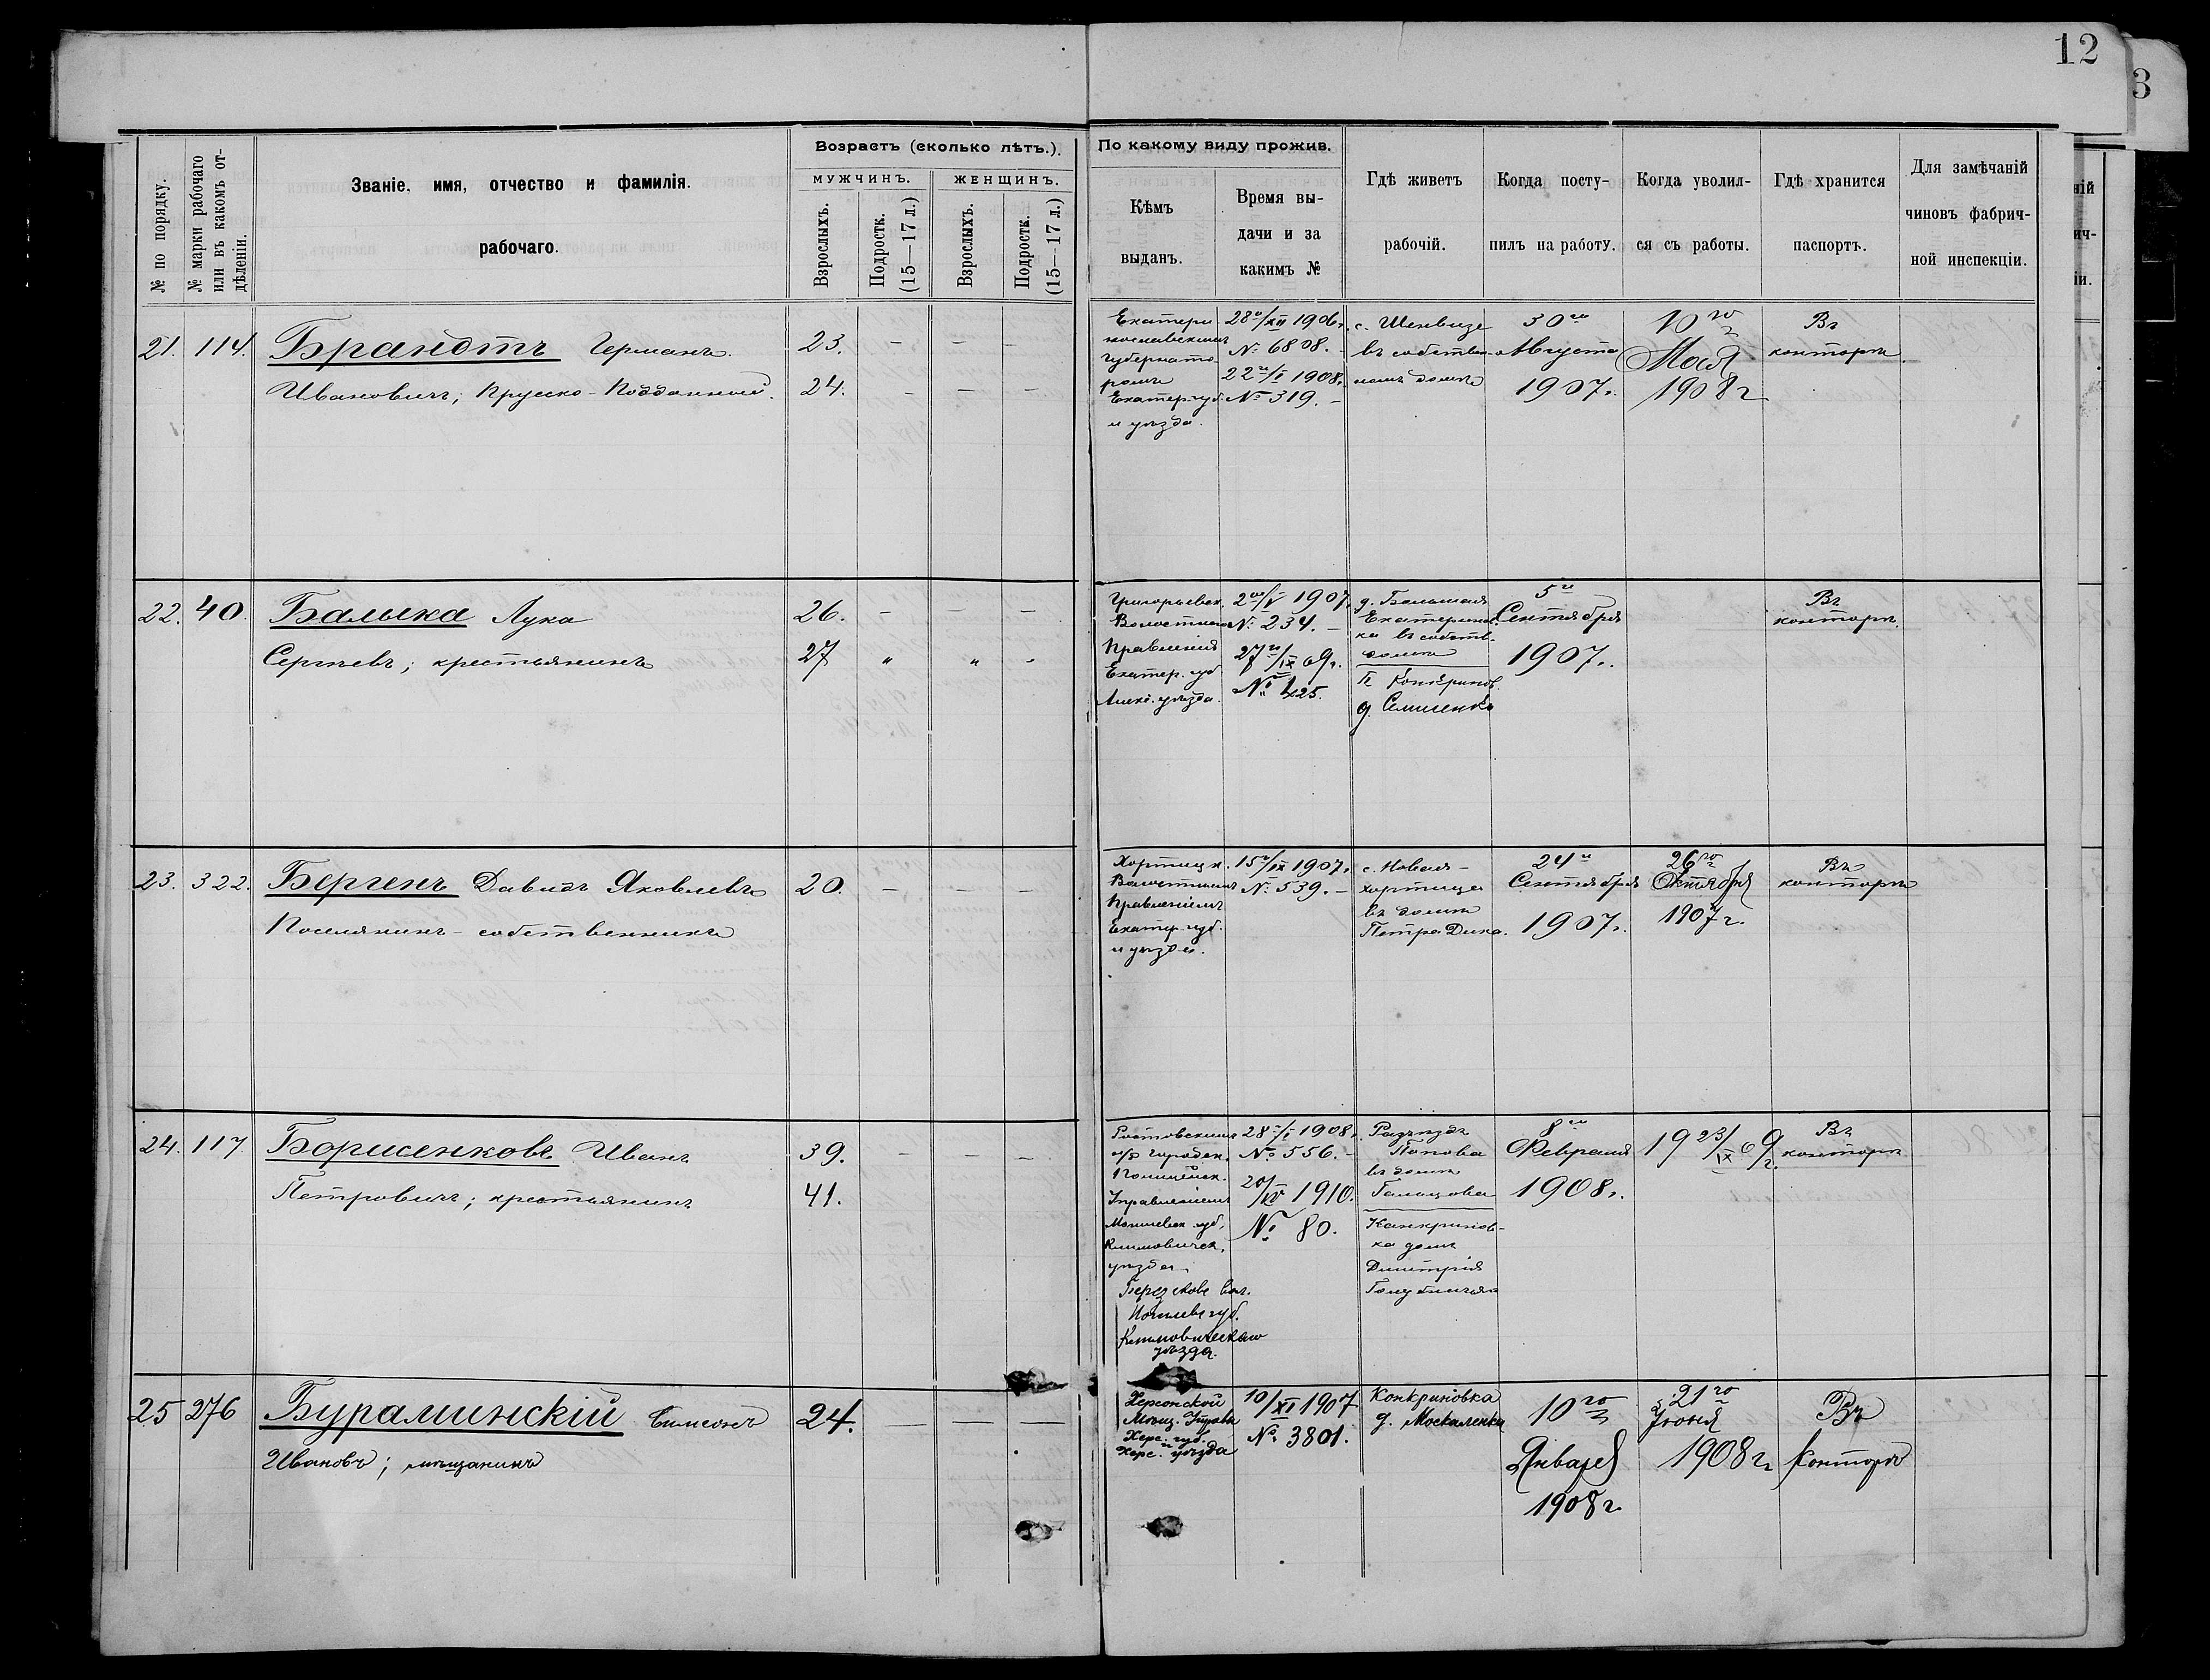 12
3
№ по порядку.
№ марки рабочаго или въ какомъ отдѣленіи.
Званіе, имя, отчество и фамилія.
рабочаго.
Возрастъ (сколько лѣтъ.).
МУЖЧИНЪ.
ЖЕНЩИНЪ.
Взрослыхъ.
Подростк. (15—17 л.)
Взрослыхъ.
Подростк. (15—17 л.)
По какому виду прожив.
Кѣмъ
выданъ.
Время вы-
дачи и за
какимъ №
Гдѣ живетъ
рабочій.
Когда посту-
пилъ на работу.
Когда уволил-
ся съ работы.
Гдѣ хранится
паспортъ.
Для замѣчаній
чиновъ фабрич-
ной инспекціи.
21. 114. Брандтъ Германъ
Ивановичъ; Прусско-Подданный.
23. — — —
24. — — —
Екатери
нославскимъ
губернато
ромъ
Екатер. губ.
и уѣзда.
28го/XII 1906г.
№ 6808. —
22го/I 1908г.
№ 319. —
с. Шенвизе
въ собствен-
номъ домѣ
30го
Августа
1907г.
10го
Мая
1908г
Въ
конторѣ
22. 40. Балыка Лука
Сергѣевъ; крестьянинъ
26. — — —
27 „ „ „
Григорьевск.
Волостного
Правленія
Екатер. губ
Алекс. уѣзда.
2го/V 1907г.
№ 234. —
27го/IX 09г.
№ 425.
д. Большая
Екатеринов-
ка въ собств.
домѣ
д. Семиенко
5го
Сентября
1907г.
Въ
конторѣ.
23. 322. Бергенъ Давидъ Яковлевъ
Поселянинъ-собственникъ
20. — — —
Хортицк.
Волостнымъ
Правленіемъ
Екатер. губ.
и уѣзда.
15го/IX 1907г.
№ 539. —
с. Новая-
хортица
въ домѣ
Петра Дика.
24го
Сентября
1907г.
26го
Октября
1907г.
Въ
конторѣ
24. 117. Борисенковъ Иванъ
Петровичъ; крестьянинъ
39. — — —
41.
Ростовскимъ
н/Д городск.
Полицейск.
Управленіемъ
Могилевск. губ.
Климовичск.
уѣзда
Могилевс губ.
Климовическаго
уѣзда.
28го/I 1908г.
№ 556. —
20/IV 1910.
№ 80.
Разъѣздъ
Попова
въ домѣ
Гальцова
Канкринов-
ка домъ
Димитрія
8го
Февраля
1908г.
19 23/IX 09г.
Въ
конторѣ
25 276 Бураминскій Симеонъ
Ивановъ; мѣщанинъ
24. — — —
Херсонской
Мѣщ. Управы
Херс. губ.
и Херс. уѣзда
10/XI 1907
№ 3801.
Конкриновка
д. Москаленка
10го
Января
1908г.
21го
Іюня
1908г.
Въ
Конторѣ